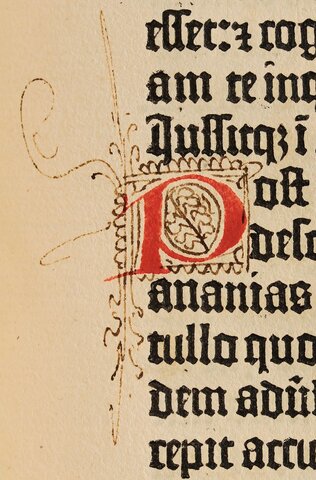 esset:⁊ cog
am te inq
Jussitqꝫ ī
Post
desc
ananias
tullo quo
dem adũ
cepit accu